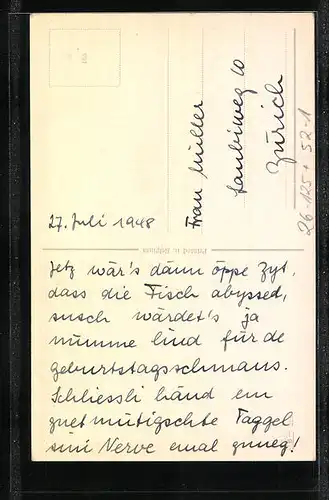 27. Juli 1948
Frau Müller
Laubiweg 10
Zürich
26-125+ 52-1
Printed in Belgium
Jetz wär's dänn öppe Zyt,
dass die Fisch abyssed,
susch wärdet's ja
nümme lind für de
geburtstagsschmaus.
Schliessli händ em
guetmütigschte Taggel
sini Nerve emal gnueg!